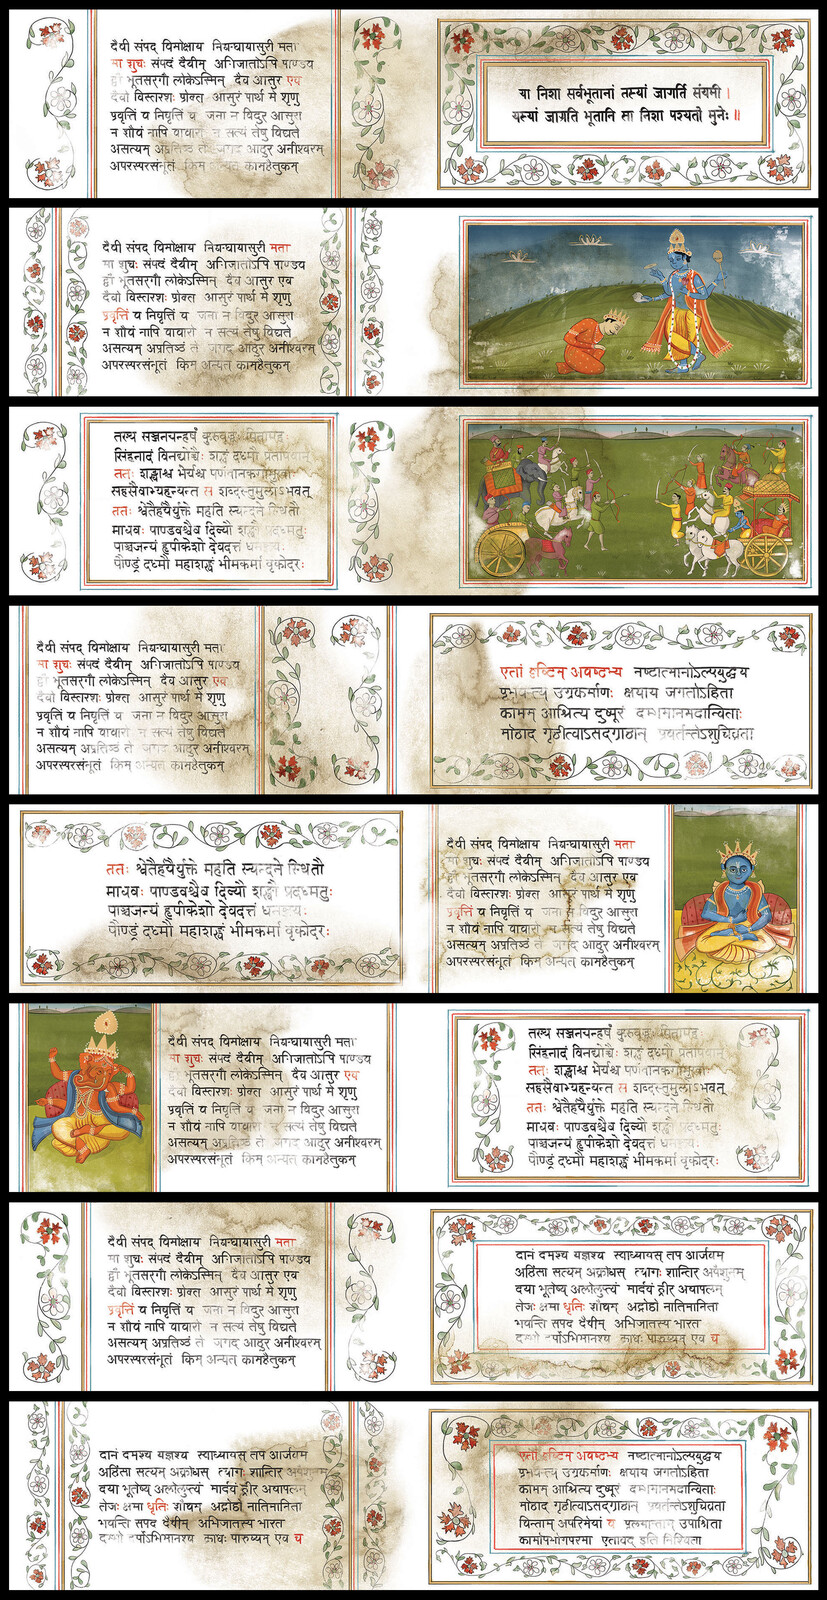 दैवी संपद् विमोक्षाय निबन्धायासुरी मता
मा शुचः संपदं दैवीम् अभिजातोऽपि पाण्डव
द्वौ भूतसर्गौ लोकेऽस्मिन् दैव आसुर एव
दैवो विस्तरशः प्रोक्त आसुरं पार्थ मे शृणु
प्रवृत्तिं च निवृत्तिं च जना न विदुर आसुरा
न शौचं नापि चाचारो न सत्यं तेषु विद्यते
असत्यम् अप्रतिष्ठं ते जगद् आदुर अनीश्वरम्
अपरस्परसंभूतं किम् अन्यत् कामहैतुकम्
या निशा सर्वभूतानां तस्यां जागर्ति संयमी ।
यस्यां जाग्रति भूतानि सा निशा पश्यतो मुनेः ॥
दैवी संपद् विमोक्षाय निबन्धायासुरी मता
मा शुचः संपदं दैवीम् अभिजातोऽपि पाण्डव
द्वौ भूतसर्गौ लोकेऽस्मिन् दैव आसुर एव
दैवो विस्तरशः प्रोक्त आसुरं पार्थ मे शृणु
प्रवृत्तिं च निवृत्तिं च जना न विदुर आसुरा
न शौचं नापि चाचारो न सत्यं तेषु विद्यते
असत्यम् अप्रतिष्ठं ते जगद् आदुर अनीश्वरम्
अपरस्परसंभूतं किम् अन्यत् कामहैतुकम्
तस्य सञ्जनयन्हर्षं कुरुवृद्धः पितामहः
सिंहनादं विनद्योच्चैः शङ्खं दध्मौ प्रतापवान्
ततः शङ्खाश्च भेर्यश्च पणवानकगोमुखाः
सहसैवाभ्यहन्यन्त स शब्दस्तुमुलोऽभवत्
ततः श्वेतैर्हयैर्युक्ते महति स्यन्दने स्थितौ
माधवः पाण्डवश्चैव दिव्यौ शङ्खौ प्रदध्मतुः
पाञ्चजन्यं हृषीकेशो देवदत्तं धनञ्जयः
पौण्ड्रं दध्मौ महाशङ्खं भीमकर्मा वृकोदरः
दैवी संपद् विमोक्षाय निबन्धायासुरी मता
मा शुचः संपदं दैवीम् अभिजातोऽपि पाण्डव
द्वौ भूतसर्गौ लोकेऽस्मिन् दैव आसुर एव
दैवो विस्तरशः प्रोक्त आसुरं पार्थ मे शृणु
प्रवृत्तिं च निवृत्तिं च जना न विदुर आसुरा
न शौचं नापि चाचारो न सत्यं तेषु विद्यते
असत्यम् अप्रतिष्ठं ते जगद् आदुर अनीश्वरम्
अपरस्परसंभूतं किम् अन्यत् कामहैतुकम्
एतां दृष्टिम् अवष्टभ्य नष्टात्मानोऽल्पबुद्धय
प्रभवन्त्य उग्रकर्माणः क्षयाय जगतोऽहिता
कामम् आश्रित्य दुष्पूरं दम्भमानमदान्विताः
मोहाद् गृहीत्वाऽसद्ग्राहान् प्रवर्तन्तेऽशुचिव्रता
ततः श्वेतैर्हयैर्युक्ते महति स्यन्दने स्थितौ
माधवः पाण्डवश्चैव दिव्यौ शङ्खौ प्रदध्मतुः
पाञ्चजन्यं हृषीकेशो देवदत्तं धनञ्जयः
पौण्ड्रं दध्मौ महाशङ्खं भीमकर्मा वृकोदरः
दैवी संपद् विमोक्षाय निबन्धायासुरी मता
मा शुचः संपदं दैवीम् अभिजातोऽपि पाण्डव
द्वौ भूतसर्गौ लोकेऽस्मिन् दैव आसुर एव
दैवो विस्तरशः प्रोक्त आसुरं पार्थ मे शृणु
प्रवृत्तिं च निवृत्तिं च जना न विदुर आसुरा
न शौचं नापि चाचारो न सत्यं तेषु विद्यते
असत्यम् अप्रतिष्ठं ते जगद् आदुर अनीश्वरम्
अपरस्परसंभूतं किम् अन्यत् कामहैतुकम्
दैवी संपद् विमोक्षाय निबन्धायासुरी मता
मा शुचः संपदं दैवीम् अभिजातोऽपि पाण्डव
द्वौ भूतसर्गौ लोकेऽस्मिन् दैव आसुर एव
दैवो विस्तरशः प्रोक्त आसुरं पार्थ मे शृणु
प्रवृत्तिं च निवृत्तिं च जना न विदुर आसुरा
न शौचं नापि चाचारो न सत्यं तेषु विद्यते
असत्यम् अप्रतिष्ठं ते जगद् आदुर अनीश्वरम्
अपरस्परसंभूतं किम् अन्यत् कामहैतुकम्
तस्य सञ्जनयन्हर्षं कुरुवृद्धः पितामहः
सिंहनादं विनद्योच्चैः शङ्खं दध्मौ प्रतापवान्
ततः शङ्खाश्च भेर्यश्च पणवानकगोमुखाः
सहसैवाभ्यहन्यन्त स शब्दस्तुमुलोऽभवत्
ततः श्वेतैर्हयैर्युक्ते महति स्यन्दने स्थितौ
माधवः पाण्डवश्चैव दिव्यौ शङ्खौ प्रदध्मतुः
पाञ्चजन्यं हृषीकेशो देवदत्तं धनञ्जयः
पौण्ड्रं दध्मौ महाशङ्खं भीमकर्मा वृकोदरः
दैवी संपद् विमोक्षाय निबन्धायासुरी मता
मा शुचः संपदं दैवीम् अभिजातोऽपि पाण्डव
द्वौ भूतसर्गौ लोकेऽस्मिन् दैव आसुर एव
दैवो विस्तरशः प्रोक्त आसुरं पार्थ मे शृणु
प्रवृत्तिं च निवृत्तिं च जना न विदुर आसुरा
न शौचं नापि चाचारो न सत्यं तेषु विद्यते
असत्यम् अप्रतिष्ठं ते जगद् आदुर अनीश्वरम्
अपरस्परसंभूतं किम् अन्यत् कामहैतुकम्
दानं दमश्च यज्ञश्च स्वाध्यायस् तप आर्जवम्
अहिंसा सत्यम् अक्रोधस् त्यागः शान्तिर् अपैशुनम्
दया भूतेष्व् अलोलुप्त्वं मार्दवं ह्रीर् अचापलम्
तेजः क्षमा धृतिः शौचम् अद्रोहो नातिमानिता
भवन्ति संपदं दैवीम् अभिजातस्य भारत
दम्भो दर्पोऽभिमानश्च क्रोधः पारुष्यम् एव च
दानं दमश्च यज्ञश्च स्वाध्यायस् तप आर्जवम्
अहिंसा सत्यम् अक्रोधस् त्यागः शान्तिर् अपैशुनम्
दया भूतेष्व् अलोलुप्त्वं मार्दवं ह्रीर् अचापलम्
तेजः क्षमा धृतिः शौचम् अद्रोहो नातिमानिता
भवन्ति संपदं दैवीम् अभिजातस्य भारत
दम्भो दर्पोऽभिमानश्च क्रोधः पारुष्यम् एव च
एतां दृष्टिम् अवष्टभ्य नष्टात्मानोऽल्पबुद्धय
प्रभवन्त्य उग्रकर्माणः क्षयाय जगतोऽहिता
कामम् आश्रित्य दुष्पूरं दम्भमानमदान्विताः
मोहाद् गृहीत्वाऽसद्ग्राहान् प्रवर्तन्तेऽशुचिव्रता
चिन्ताम् अपरिमेयां च प्रलयान्ताम् उपाश्रिता
कामोपभोगपरमा एतावद् इति निश्चिता